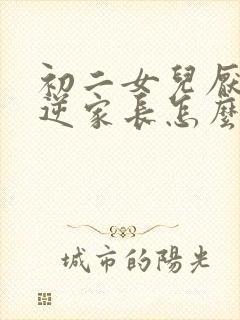 初二女兒厭
逆家長怎麼
城市的陽光